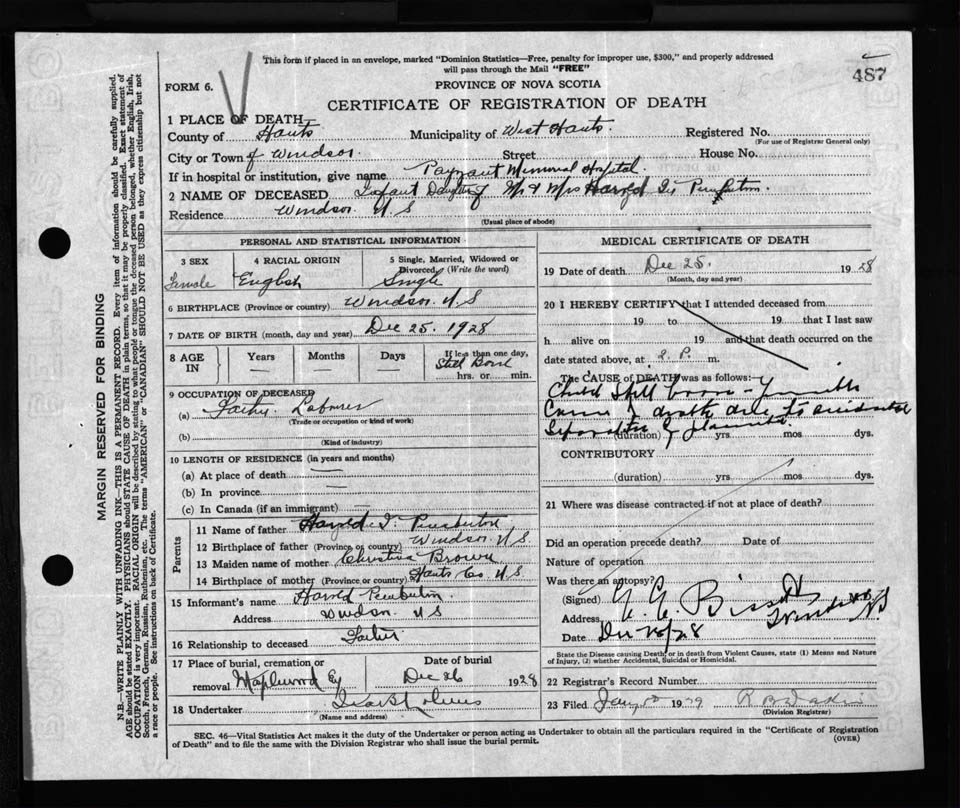 This form if placed in an envelope, marked "Dominion Statistics—Free, penalty for improper use, $300," and properly addressed
will pass through the Mail "FREE"
487
FORM 6.
PROVINCE OF NOVA SCOTIA
CERTIFICATE OF REGISTRATION OF DEATH
1 PLACE OF DEATH
County of Hants Municipality of West Hants. Registered No.
(For use of Registrar General only)
City or Town of Windsor. Street House No.
If in hospital or institution, give name Payzant Memorial Hospital.
2 NAME OF DECEASED Infant Daughter of Mr & Mrs Harold I. Pemberton.
Residence Windsor N S
(Usual place of abode)
PERSONAL AND STATISTICAL INFORMATION
3 SEX 4 RACIAL ORIGIN 5 Single, Married, Widowed or
Divorced (Write the word)
Female English Single
6 BIRTHPLACE (Province or country) Windsor N.S
7 DATE OF BIRTH (month, day and year) Dec 25. 1928
8 AGE IN Years Months Days If less than one day,
Still Born
hrs. or min.
9 OCCUPATION OF DECEASED
(a) Father Laborer
(Trade or occupation or kind of work)
(b)
(Kind of industry)
10 LENGTH OF RESIDENCE (in years and months)
(a) At place of death
(b) In province
(c) In Canada (if an immigrant)
Parents
11 Name of father Harold I. Pemberton
12 Birthplace of father (Province or country) Windsor N S
13 Maiden name of mother Christie Brown
14 Birthplace of mother (Province or country) Hants Co N.S
15 Informant's name Harold Pemberton
Address Windsor N S
16 Relationship to deceased Father
17 Place of burial, cremation or Date of burial
removal Maplewood Cy Dec 26 1928
18 Undertaker
(Name and address)
MEDICAL CERTIFICATE OF DEATH
19 Date of death Dec 25. 1928
(Month, day and year)
20 I HEREBY CERTIFY that I attended deceased from
19 to 19 that I last saw
h alive on 19 and that death occurred on the
date stated above, at 2. P. m.
The CAUSE of DEATH was as follows:
Child Still born
Cause of death due to accidental
separation of placenta
(duration) yrs mos dys.
CONTRIBUTORY
(duration) yrs mos dys.
21 Where was disease contracted if not at place of death?
Did an operation precede death? Date of
Nature of operation
Was there an autopsy?
(Signed) Bissett
Address Windsor N.S
Date Dec 28/28
State the Disease causing Death, or in death from Violent Causes, state (1) Means and Nature
of Injury, (2) whether Accidental, Suicidal or Homicidal.
22 Registrar's Record Number
23 Filed Jany 1929
(Division Registrar)
SEC. 46—Vital Statistics Act makes it the duty of the Undertaker or person acting as Undertaker to obtain all the particulars required in the "Certificate of Registration
of Death" and to file the same with the Division Registrar who shall issue the burial permit.
(OVER)
MARGIN RESERVED FOR BINDING
N.B.—WRITE PLAINLY WITH UNFADING INK—THIS IS A PERMANENT RECORD. Every item of information should be carefully supplied.
AGE should be stated EXACTLY. PHYSICIANS should STATE CAUSE OF DEATH in plain terms, so that it may be properly classified. Exact statement of
OCCUPATION is very important. RACIAL ORIGIN will be described by stating to what people or tongue the deceased person belonged, whether English, Irish,
Scotch, French, German, Russian, Ruthenian, etc. The terms "AMERICAN" or "CANADIAN" SHOULD NOT BE USED as they express citizenship but not
a race or people. See instructions on back of Certificate.